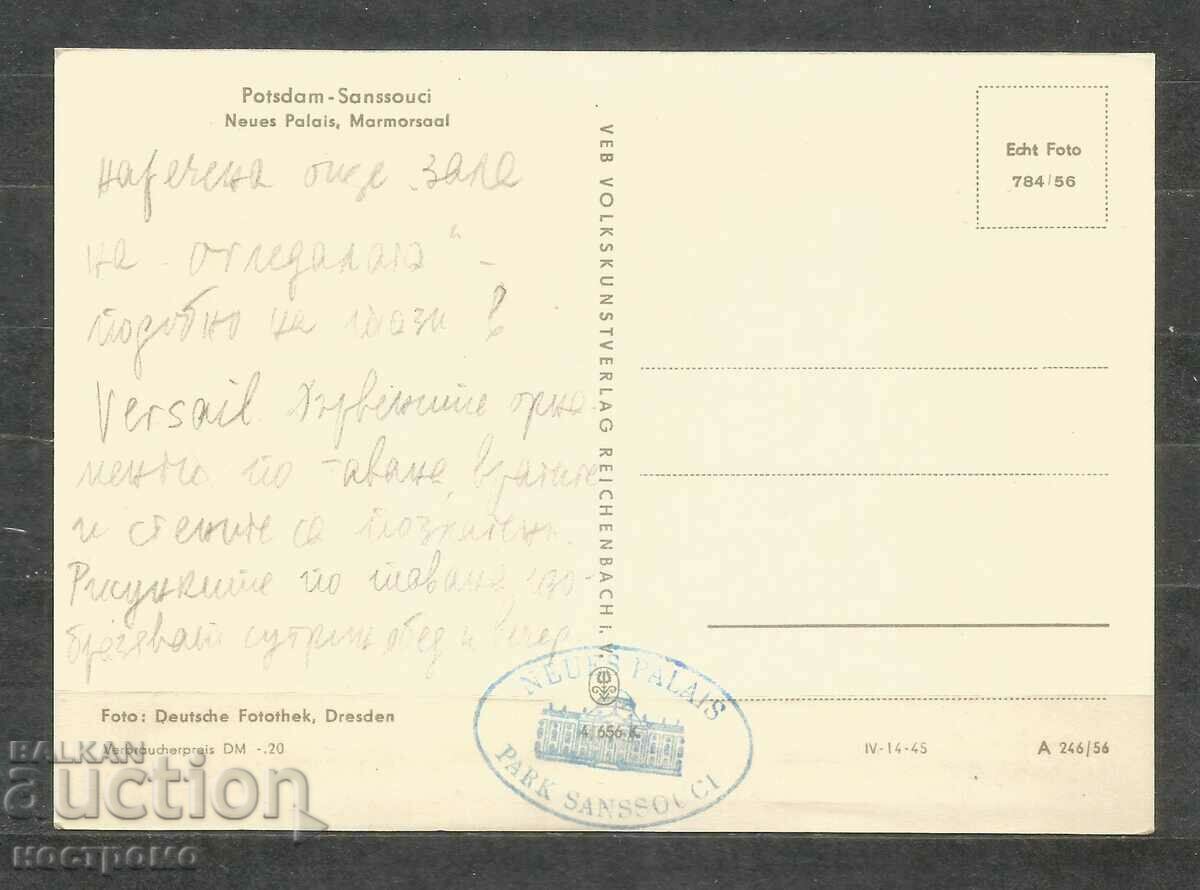 Potsdam-Sanssouci
Neues Palais, Marmorsaal
наречена още „зала
на огледалата“ –
подобно на тази в
Versail. Дървените орна-
менти по тавана, вратите
и стените са позлатени.
Рисунките по тавана изо-
бразяват сутрин, обед и вечер
Foto: Deutsche Fotothek, Dresden
Verbraucherpreis DM -.20
VEB VOLKSKUNSTVERLAG REICHENBACH i. V.
Echt Foto
784/56
NEUES PALAIS
4/656 K
PARK SANSSOUCI
IV-14-45
A 246/56
BALKAN
auction
костромо